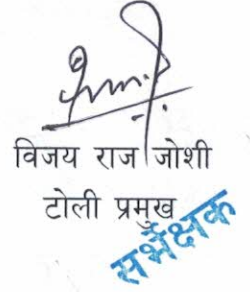 विजय राज जोशी
टोली प्रमुख
सर्भेक्षक